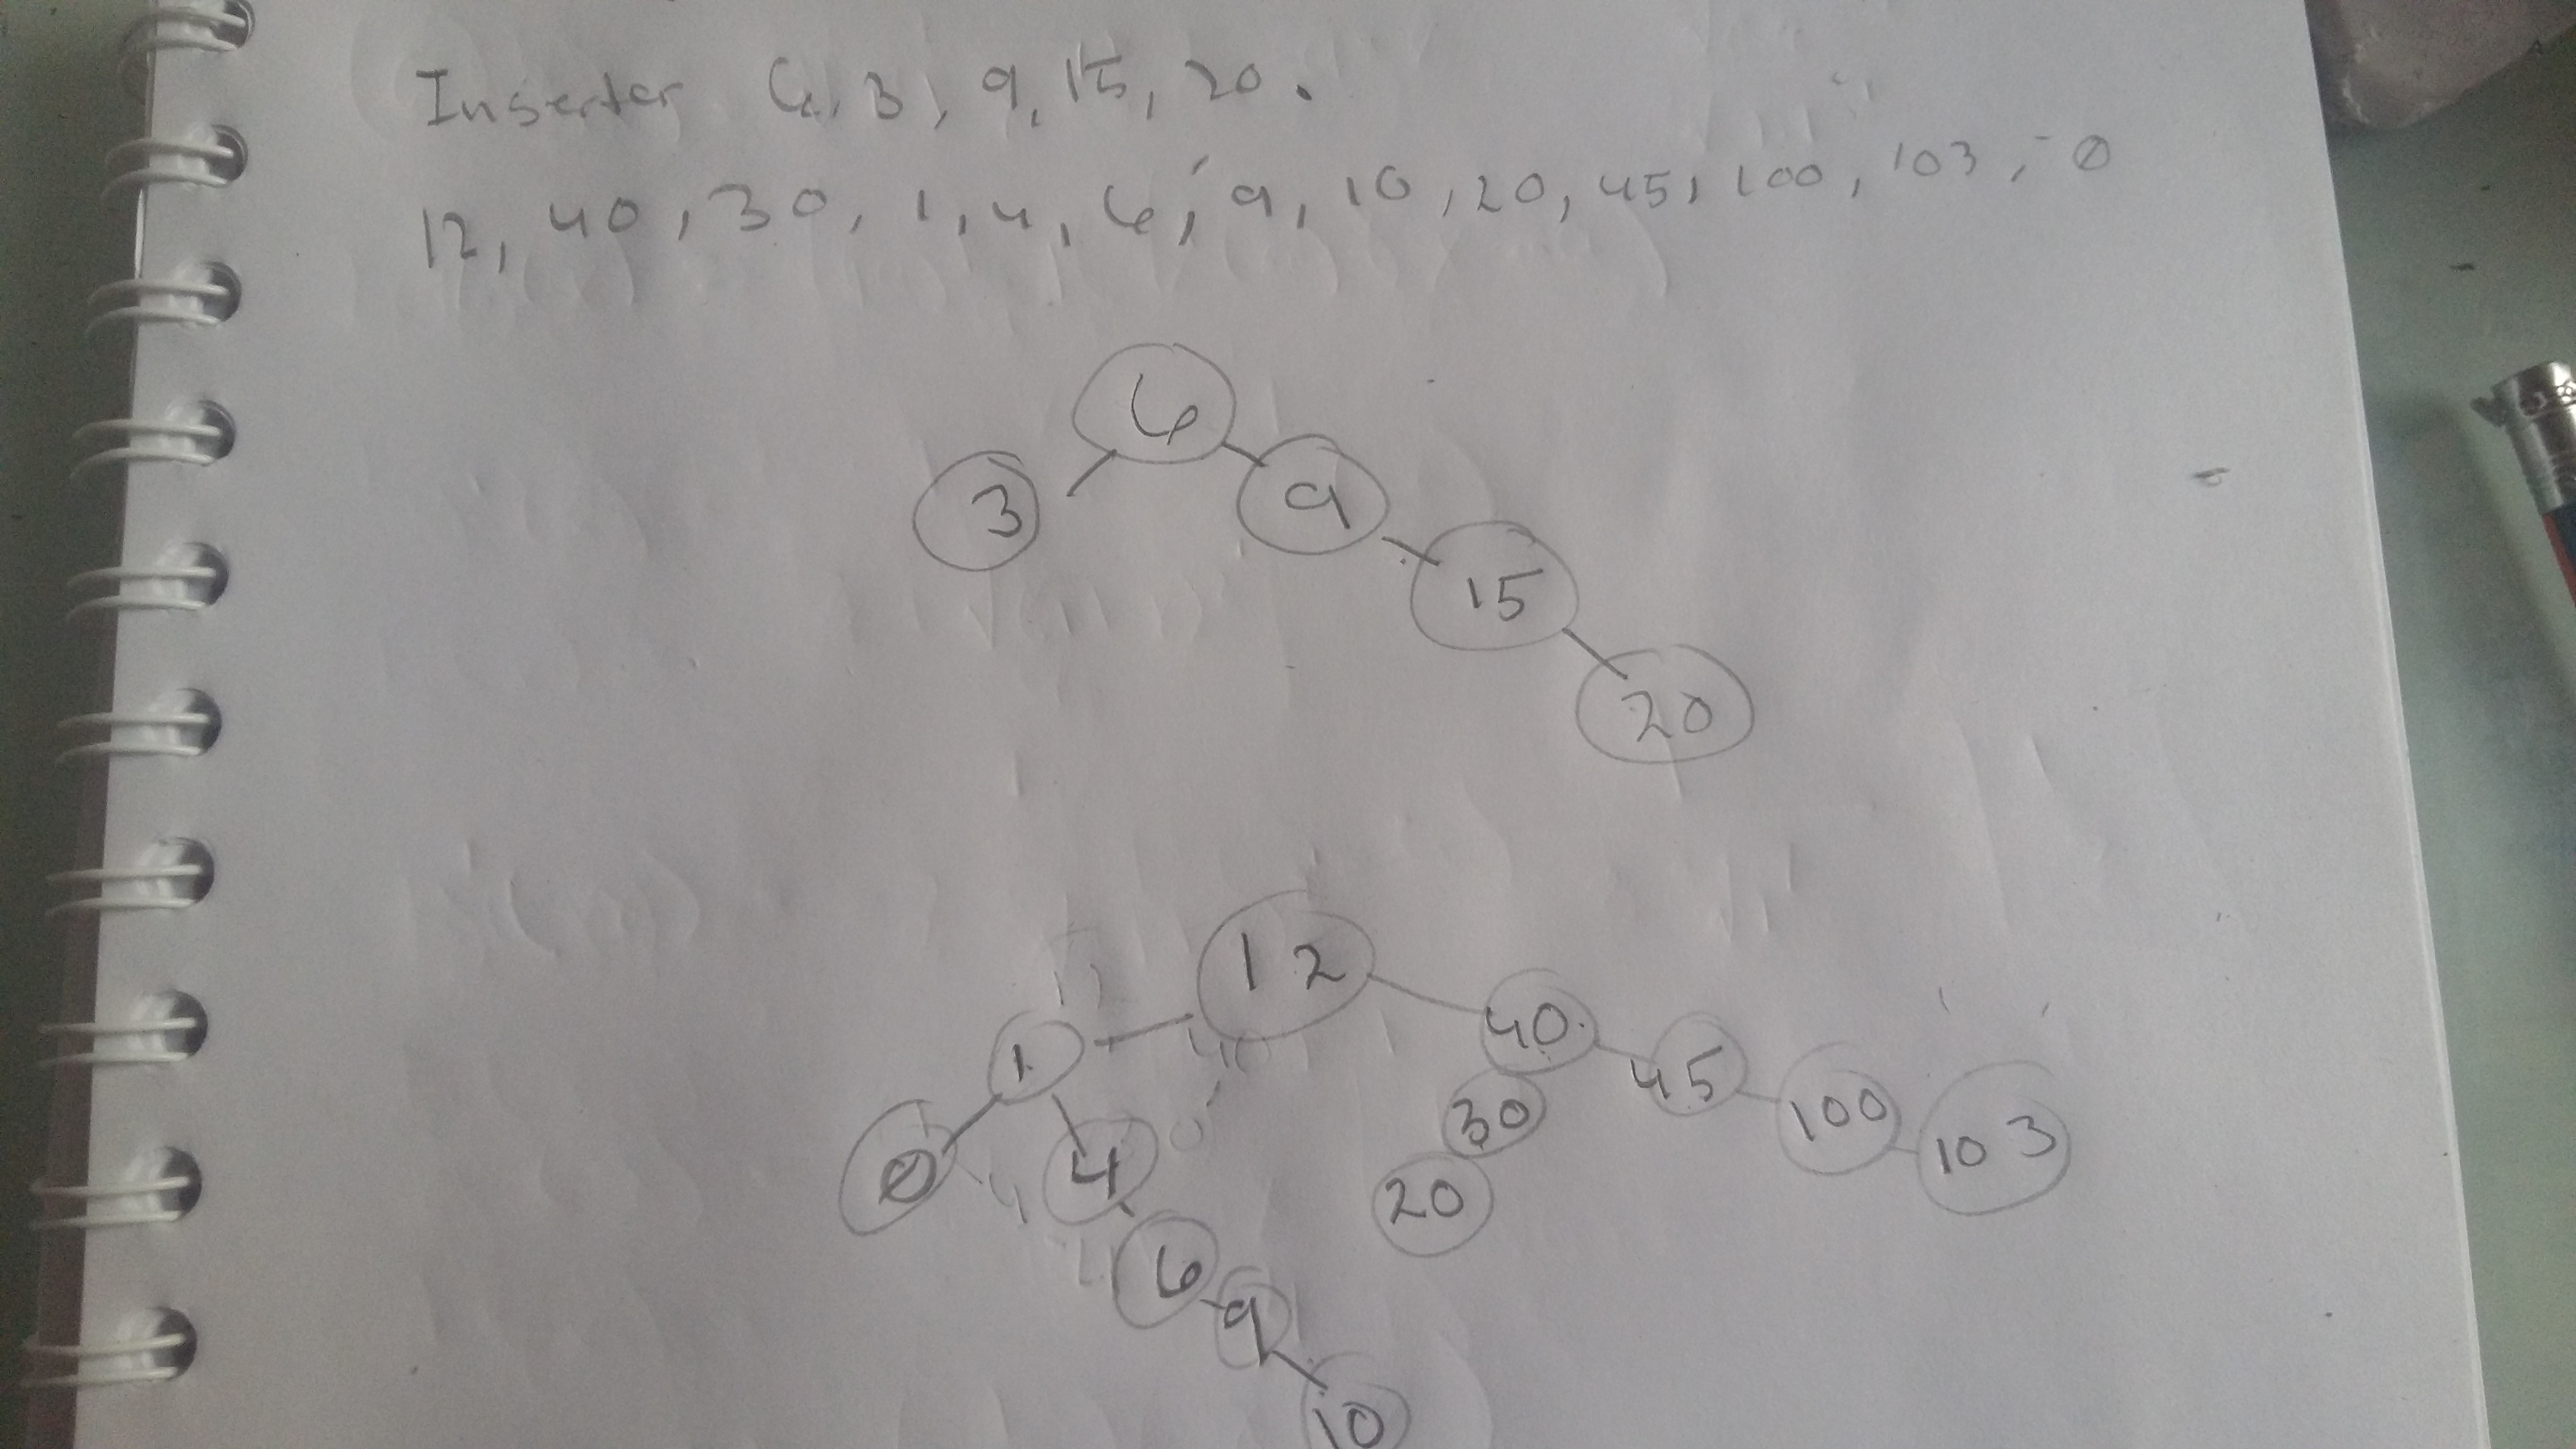 Inserter 6, 3, 9, 15, 20.
12, 40, 30, 1, 4, 6, 9, 10, 20, 45, 100, 103, 0
6
3
9
15
20
12
1
40
45
100
103
30
20
0
4
6
9
10